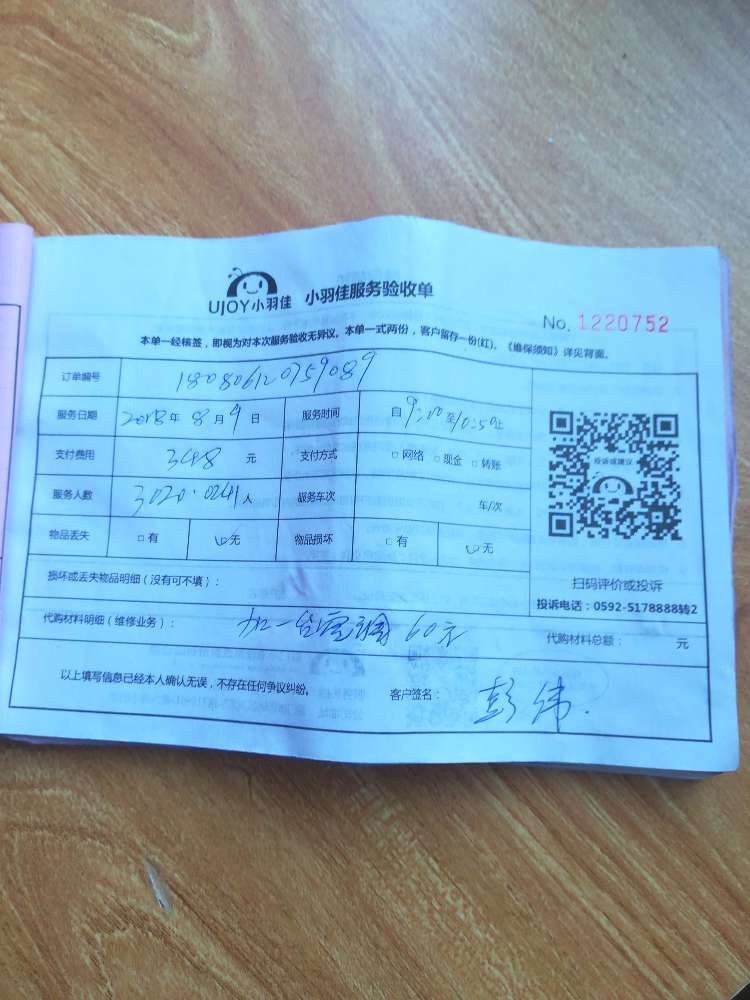 UJOY小羽佳 小羽佳服务验收单
No. 1220752
本单一经核签，即视为对本次服务验收无异议。本单一式两份，客户留存一份(红)。《维保须知》详见背面。
订单编号 180806120759089
服务日期 2018年8月9日 服务时间 自9:00至10:50止
支付费用 348元 支付方式 □网络 □现金 □转账
服务人数 3020.0241人 服务车次 车/次
物品丢失 □有 ☑无 物品损坏 □有 ☑无
投诉或建议
扫码评价或投诉
投诉电话：0592-5178888转2
损坏或丢失物品明细（没有可不填）：
代购材料明细（维修业务）： 加一台空调60元 代购材料总额： 元
以上填写信息已经本人确认无误，不存在任何争议纠纷。 客户签名： 彭伟.